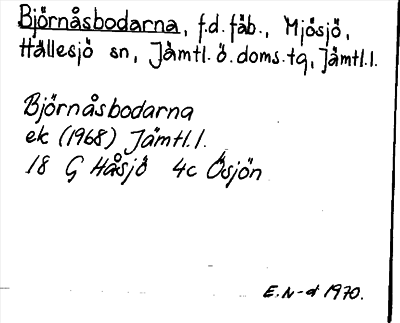 Björnåsbodarna, f.d. fäb., Mjösjö,
Hällesjö sn, Jämtl. ö. doms. tg, Jämtl. l.
Björnåsbodarna
ek (1968) Jämtl. l.
18 G Håsjö 4c Ösjön
E. N-d 1970.